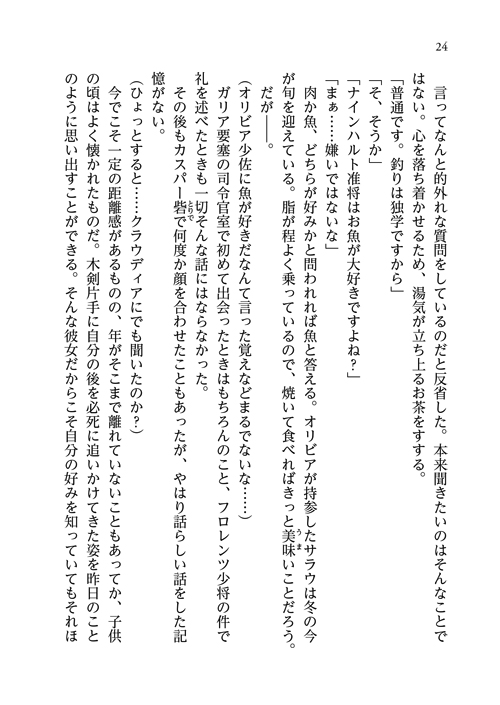 24
言ってなんと的外れな質問をしているのだと反省した。本来聞きたいのはそんなことで
はない。心を落ち着かせるため、湯気が立ち上るお茶をすする。
「普通です。釣りは独学ですから」
「そ、そうか」
「ナインハルト准将はお魚が大好きですよね？」
「まぁ……嫌いではないな」
肉か魚、どちらが好みかと問われれば魚と答える。オリビアが持参したサラウは冬の今
が旬を迎えている。脂が程よく乗っているので、焼いて食べればきっと美味いことだろう。
だが――。
（オリビア少佐に魚が好きだなんて言った覚えなどまるでないな……）
ガリア要塞の司令官室で初めて出会ったときはもちろんのこと、フロレンツ少将の件で
礼を述べたときも一切そんな話にはならなかった。
その後もカスパー砦で何度か顔を合わせたこともあったが、やはり話らしい話をした記
憶がない。
（ひょっとすると……クラウディアにでも聞いたのか？）
今でこそ一定の距離感があるものの、年がそこまで離れていないこともあってか、子供
の頃はよく懐かれたものだ。木剣片手に自分の後を必死に追いかけてきた姿を昨日のこと
のように思い出すことができる。そんな彼女だからこそ自分の好みを知っていてもそれほ